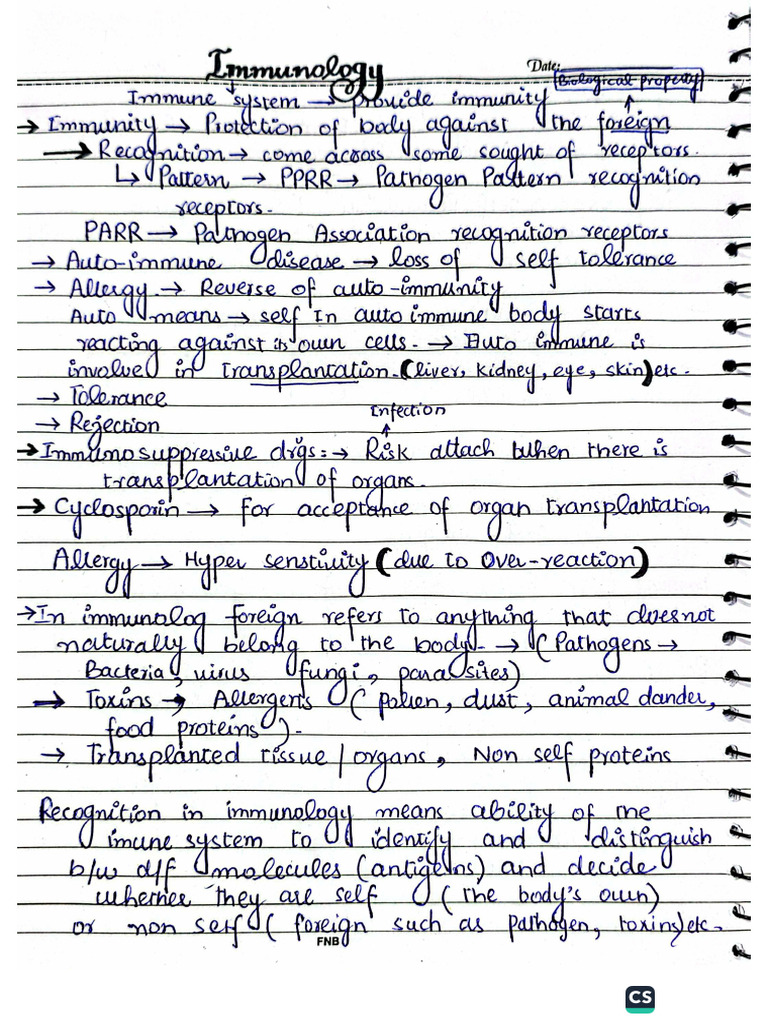 Immunology
Date:
Biological property
Immune system → provide immunity
→ Immunity → Protection of body against the foreign
→ Recognition → come across some sought of receptors.
↳ Pattern → PPRR → Pathogen Pattern recognition
receptors.
PARR → Pathogen Association recognition receptors
→ Auto-immune disease → loss of self tolerance
→ Allergy → Reverse of auto-immunity
Auto means → self In auto immune body starts
reacting against its own cells. → Auto immune is
involved in transplantation. (liver, kidney, eye, skin) etc.
→ Tolerance
Infection
→ Rejection
→ Immunosuppressive drgs: → Risk attach when there is
transplantation of organs.
→ Cyclosporin → for acceptance of organ transplantation
Allergy → Hyper senstivity (due to over-reaction)
→ In immunolog foreign refers to anything that doesnot
naturally belong to the body. → (Pathogens →
Bacteria, virus fungi, parasites)
→ Toxins → Allergens (pollen, dust, animal dander,
food proteins).
→ Transplanted tissue / organs, Non self proteins
Recognition in immunology means ability of the
imune system to identify and distinguish
b/w d/f molecules (antigens) and decide
whether they are self (the body's own)
or non self (foreign such as pathogen, toxins) etc.
FNB
CS